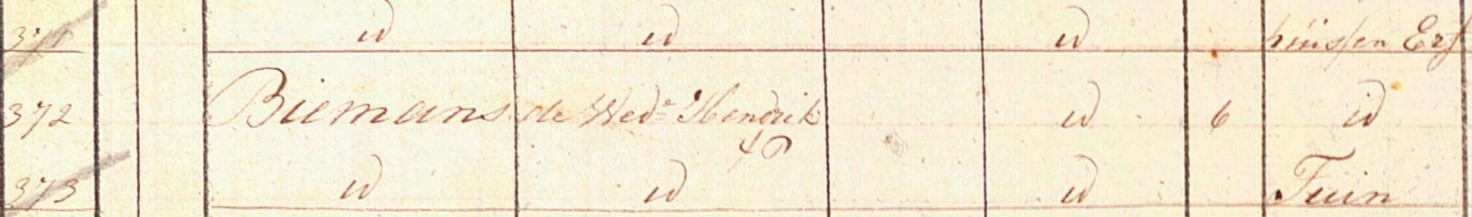 371 id id id huissen Erf
372 Biemans de Wede Hendrik id 6 id
373 id id id Tuin